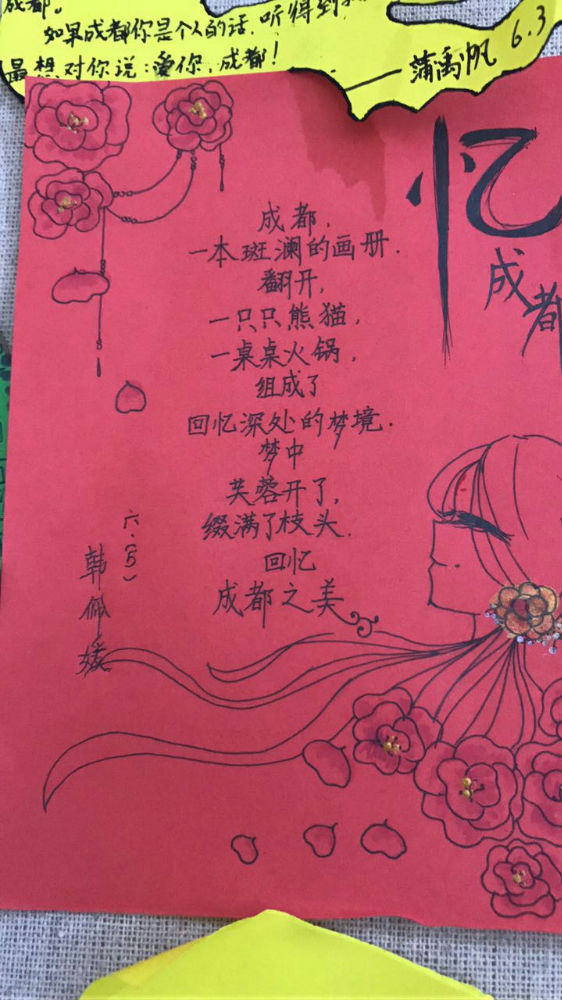 成都。
如果成都你是个人的话，听得到
最想对你说：爱你，成都！
——蒲禹帆 6.3
忆
成都
成都，
一本斑澜的画册．
翻开，
一只只熊猫，
一桌桌火锅，
组成了
回忆深处的梦境．
梦中
芙蓉开了，
缀满了枝头．
回忆
成都之美
六．(5)
韩佩媛